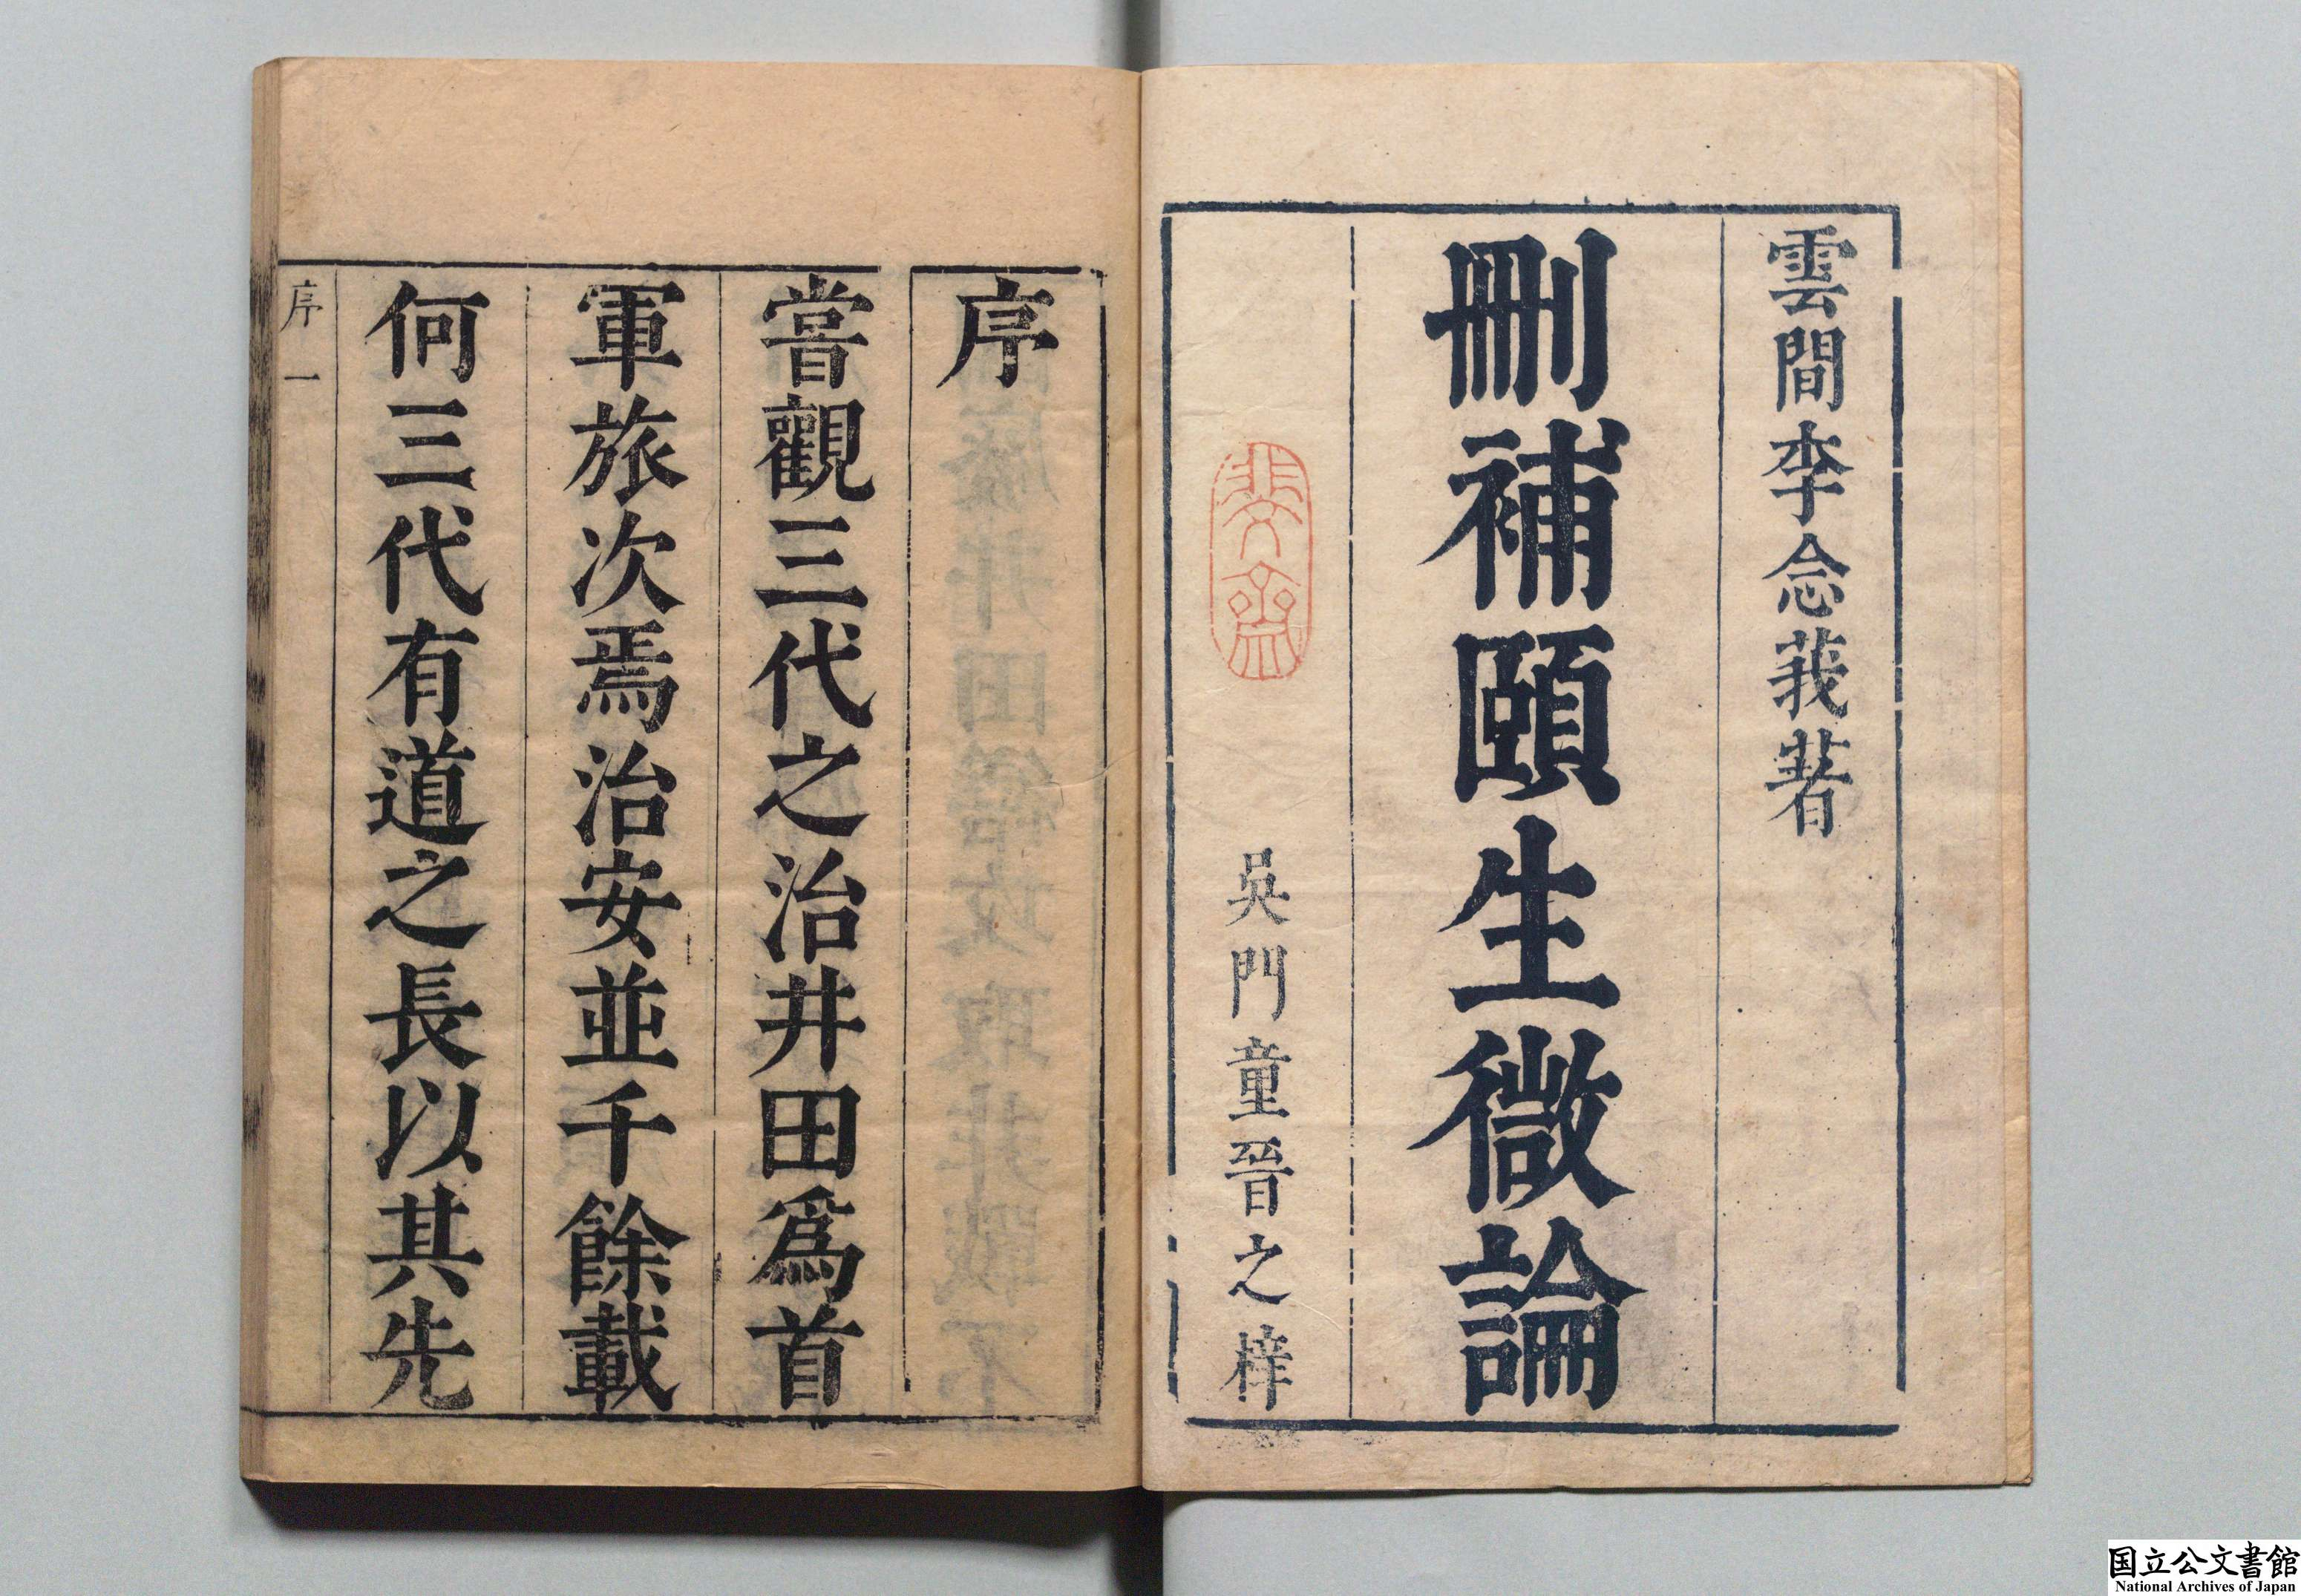 雲間李念莪著
刪補頤生微論
吳門童晉之梓
序
嘗觀三代之治井田爲首
軍旅次焉治安並千餘載
何三代有道之長以其先
序 一
国立公文書館
National Archives of Japan